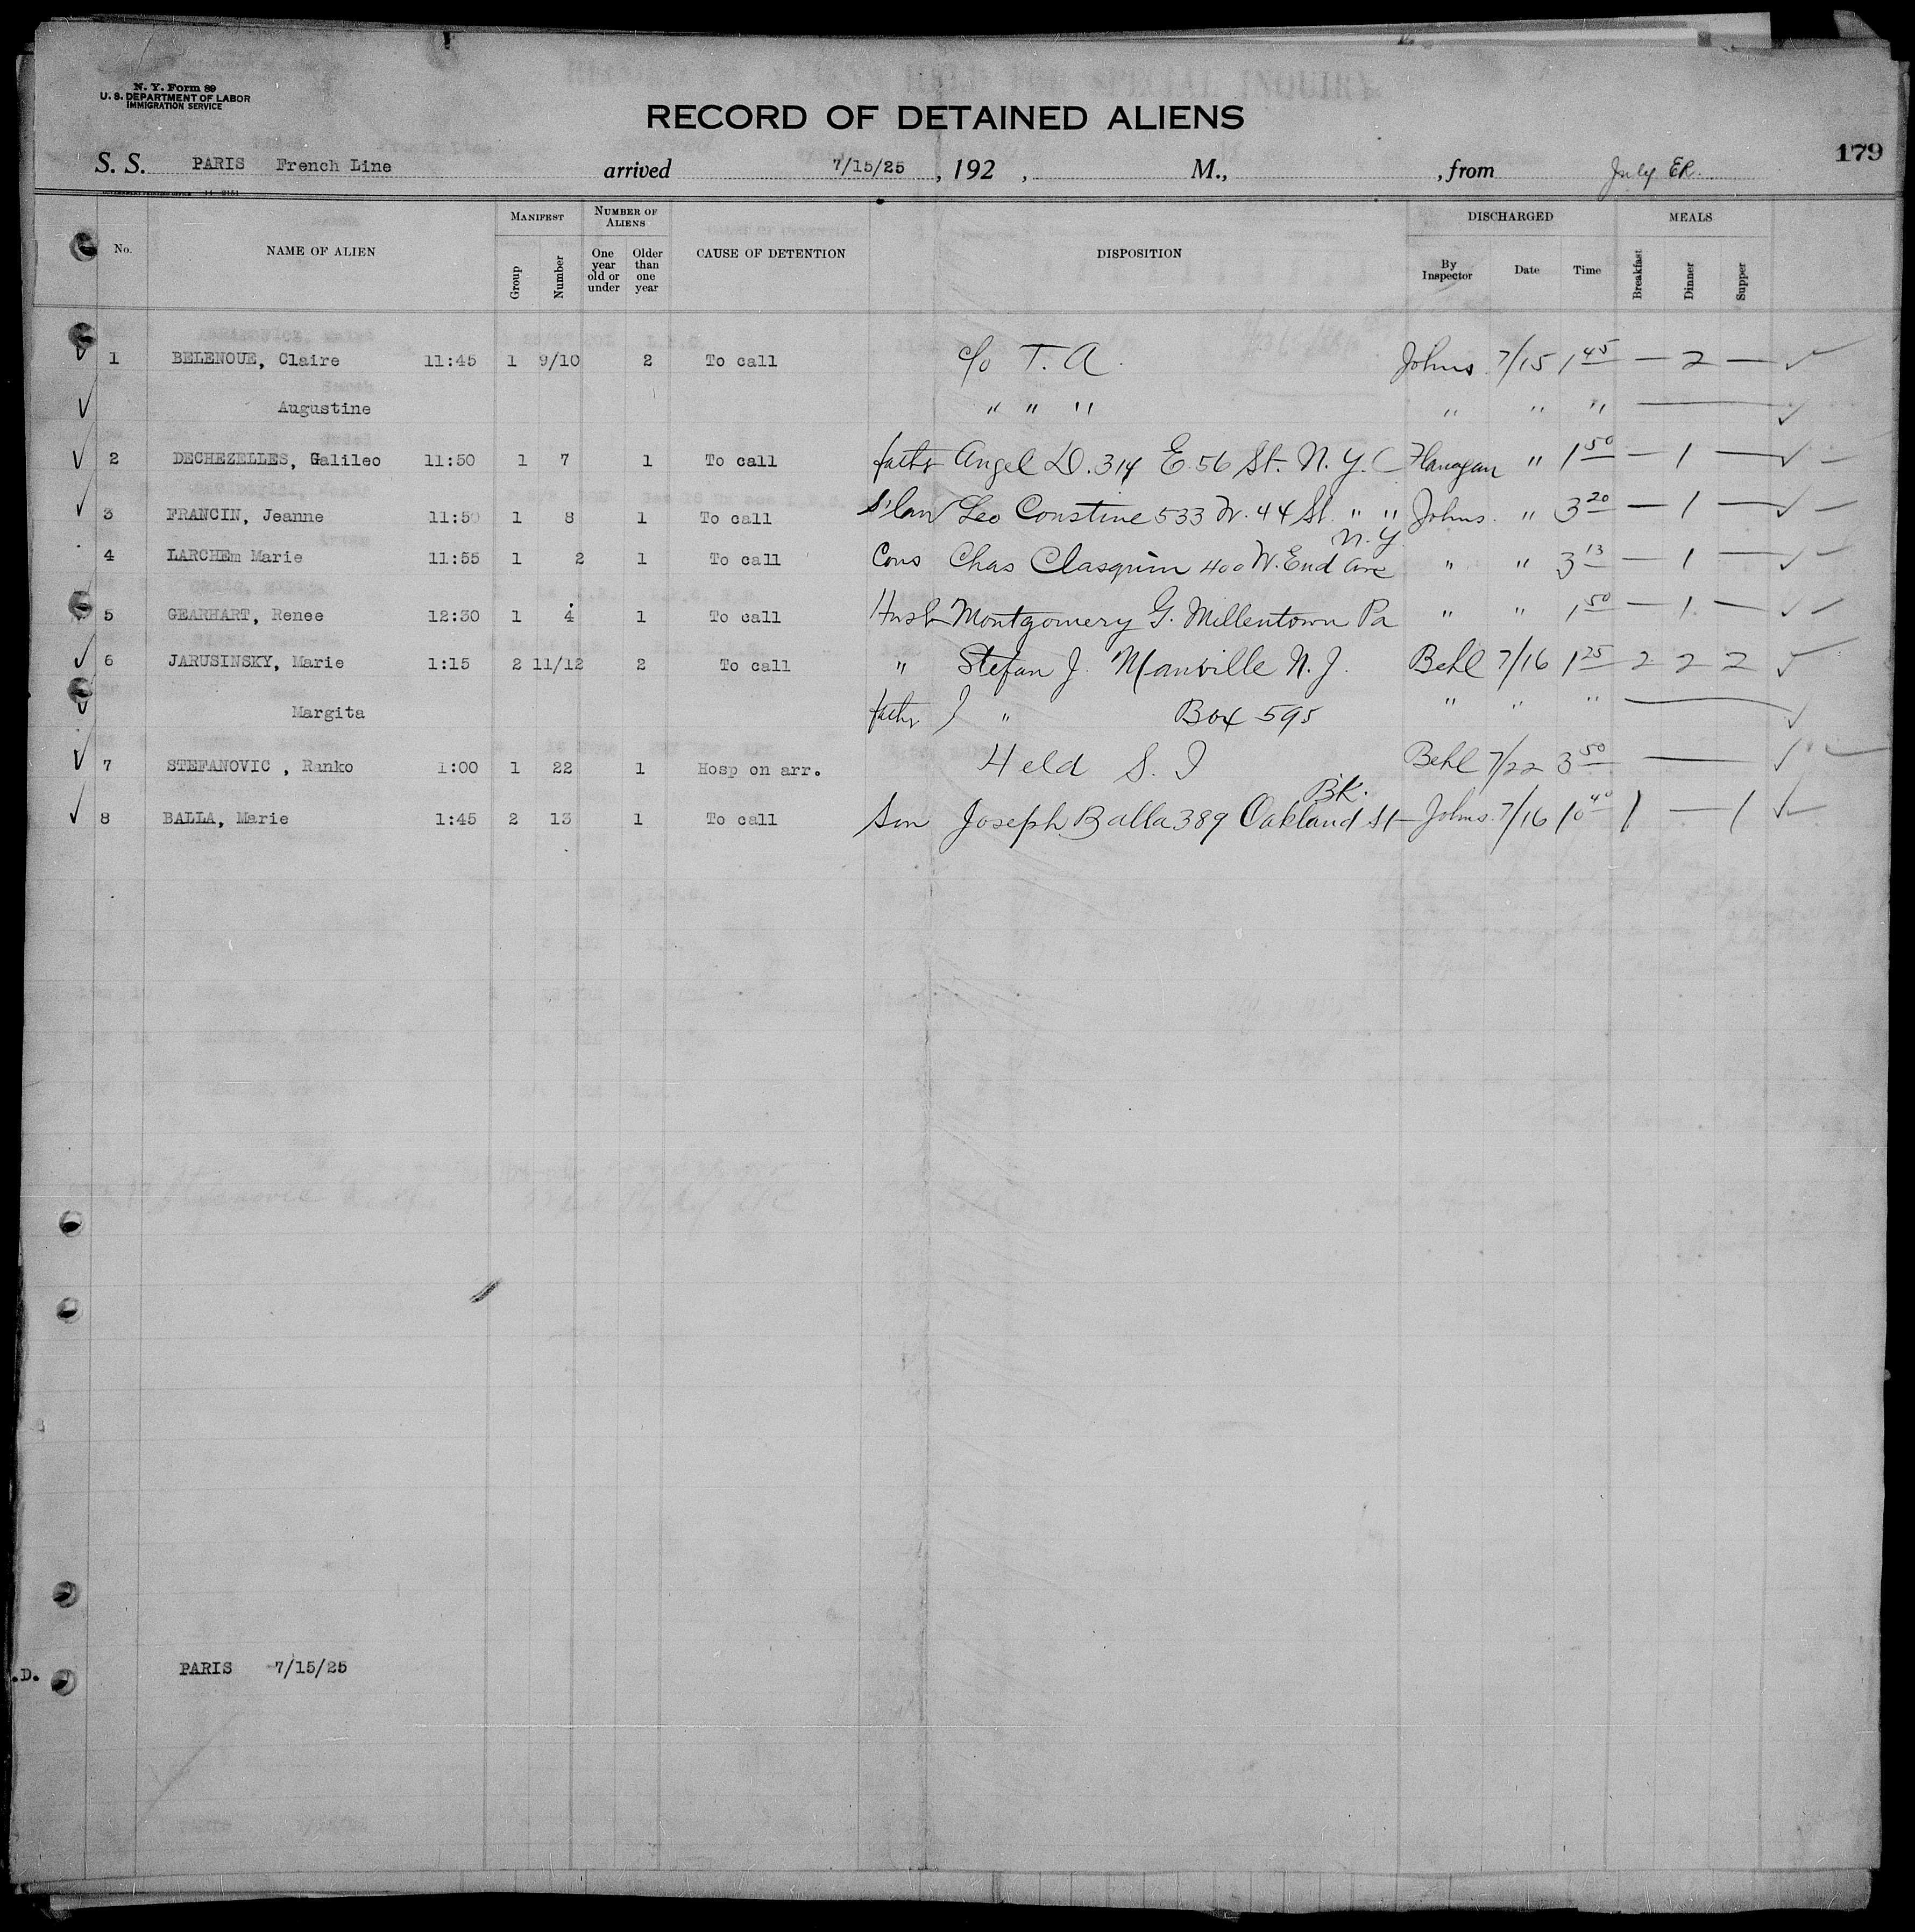 N. Y. Form 89
U. S. DEPARTMENT OF LABOR
IMMIGRATION SERVICE
RECORD OF DETAINED ALIENS
179
S. S. PARIS French Line arrived 7/15/25, 192 , M., , from July ER.
GOVERNMENT PRINTING OFFICE
No. NAME OF ALIEN MANIFEST Group Number NUMBER OF ALIENS One year old or under Older than one year CAUSE OF DETENTION DISPOSITION DISCHARGED By Inspector Date Time MEALS Breakfast Dinner Supper
✓ 1 BELENOUE, Claire 11:45 1 9/10 2 To call c/o T. A. Johns. 7/15 1 45 — 2 — ✓
✓ Augustine " " " " " " — ✓
✓ 2 DECHEZELLES, Galileo 11:50 1 7 1 To call fathr Angel D. 314 E. 56 St. N. Y. C Flanagan " 1 50 — 1 — ✓ —
✓ 3 FRANCIN, Jeanne 11:50 1 8 1 To call S'law Leo Constine 533 W. 44 St. " " Johns. " 3 20 — 1 — ✓ —
N.Y.
4 LARCHEm Marie 11:55 1 2 1 To call Cous Chas Clasquin 400 W. End Ave " " 3 13 — 1 — ✓ —
5 GEARHART, Renee 12:30 1 4 1 To call Husb Montgomery G. Millentown Pa " " 1 50 — 1 — ✓ —
✓ 6 JARUSINSKY, Marie 1:15 2 11/12 2 To call " Stefan J. Manville N. J. Behl 7/16 1 25 2 2 2 ✓
✓ Margita fathr J " Box 595 " " " — ✓
✓ 7 STEFANOVIC , Ranko 1:00 1 22 1 Hosp on arr. Held S. I Behl 7/22 3 50 — ✓ —
Bk.
✓ 8 BALLA, Marie 1:45 2 13 1 To call Son Joseph Balla 389 Oakland St Johns. 7/16 10 40 1 — 1 ✓
.D. PARIS 7/15/25